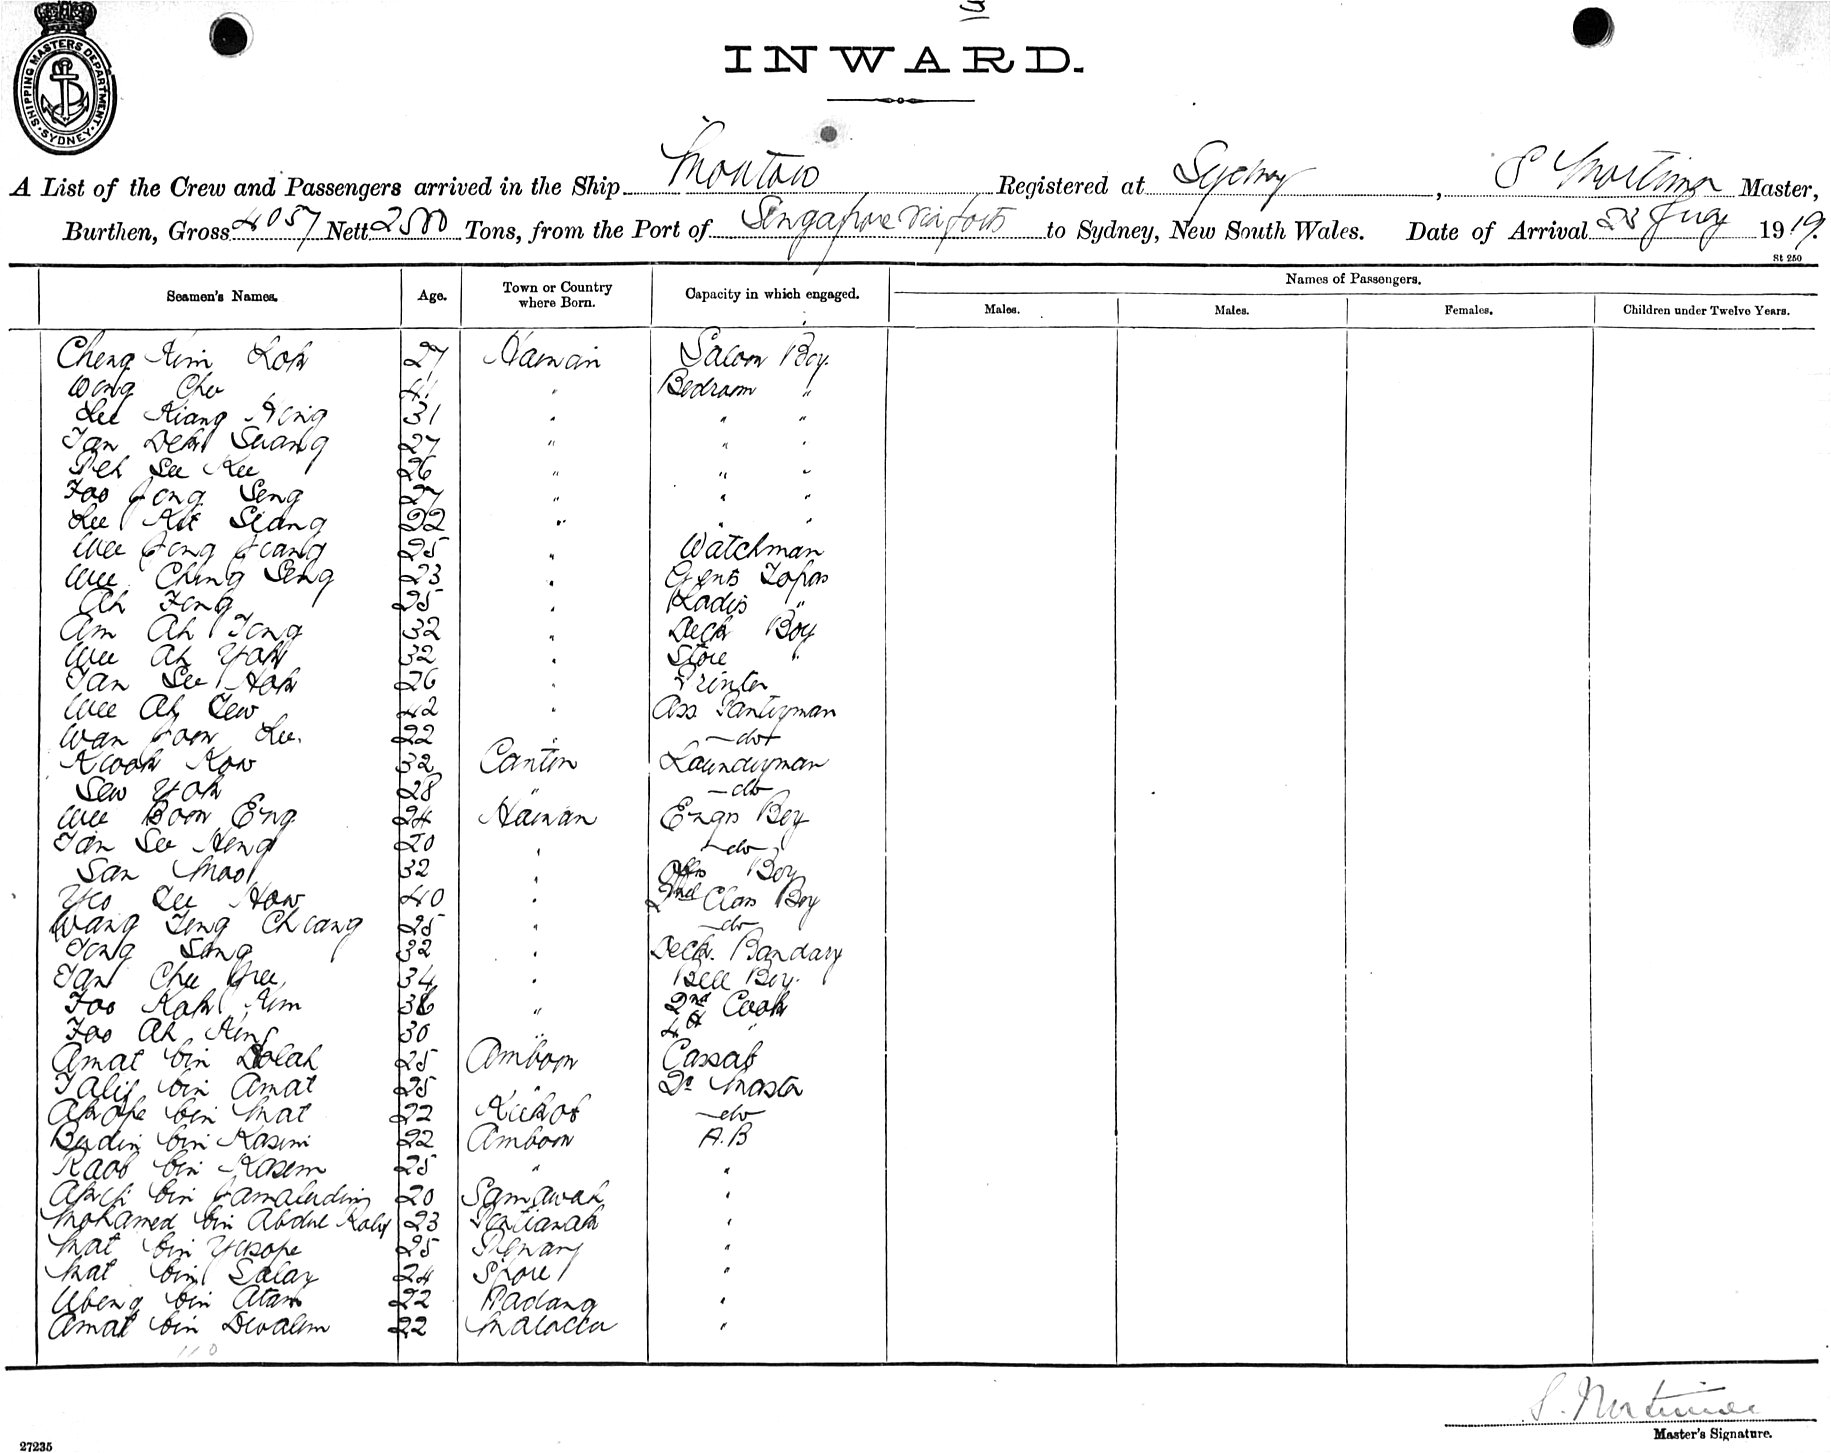 SHIPPING MASTERS DEPARTMENT · SYDNEY ·
INWARD.
A List of the Crew and Passengers arrived in the Ship Montoro Registered at Sydney, S Mortimer Master,
Burthen, Gross 4057 Nett 2500 Tons, from the Port of Singapore via ports to Sydney, New South Wales. Date of Arrival 23 1919.
St 250
Seamen's Names. Age. Town or Country where Born. Capacity in which engaged. Names of Passengers.
Males. Males. Females. Children under Twelve Years.
Cheng Kim Loh 27 Hainan Saloon Boy
Wong Chu 41 " Bedroom "
Lee Kiang Hong 31 " " "
Tan Deh Suang 27 " " "
Peh See Kee 26 " " "
Foo Jong Seng 27 " " "
Lee Kit Siang 22 " " "
Wee Jong Juang 25 " Watchman
Wee Ching Seng 23 " Gents Topas
Ah Fong 25 " Ladis "
Am Ah Tong 32 " Deck Boy
Wee Ah Yoh 32 " Store "
Tan See Hoh 26 " Printer
Wee Ah Tew 42 " Ass Pantryman
Wan Joon Lee. 22 " do
Kwoh Kow 32 Canton Laundryman
Sew Yoh 28 " do
Wee Boon Eng 24 Hainan Engrs Boy
Tan See Heng 20 " do
San Mao 32 " Offrs Boy
Yeo Tee How 40 " 2nd Class Boy
Wang Teng Chuang 25 " do
Tong Song 32 " Deck Bandary
Tan Chu 34 " Bell Boy.
Foo Kah Kim 36 " 2nd Cook
Foo Ah King 30 " 4th "
Amat bin Dolah 25 Amboon Cassab
Talif bin Amat 25 " Qr Master
bin Mat 22 do
Budin bin Kasim 22 Amboon A.B
Raob bin Kasem 25 " "
bin Jamaludin 20 "
Mohamed bin Abdul 23 Pontianak "
Mat bin Yusope 25 Penang "
Mat bin Salay 24 S'pore "
Ubeng bin Atam 22 Padang "
Amat bin Dwalim 22 Malacca "
110
S. Mortimer
Master's Signature.
27235